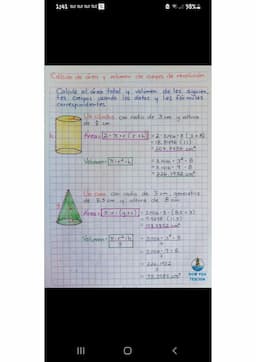 1:41
98%
Cálculo de área y volumen de cuerpos de revolución
Calcula el área total y volumen de los siguien-
tes cuerpos usando los datos y las fórmulas
correspondientes.
Un cilindro con radio de 3 cm y altura
de 8 cm
Área = 2·π·r(r+h) = 2·3.1416·3(3+8)
= 18.8496 (11)
= 207.3456 cm²
Volumen = π·r²·h = 3.1416·3²·8
= 3.1416·9·8
= 226.1952 cm³
Un cono con radio de 3 cm, generatriz
de 8.5 cm y altura de 8 cm
Área = π·r(g+r) = 3.1416·3·(8.5+3)
= 9.4248 (11.5)
Volumen = π·r²·h = 3.1416·3²·8
3 3
= 3.1416·9·8
3
= 226.1952
3